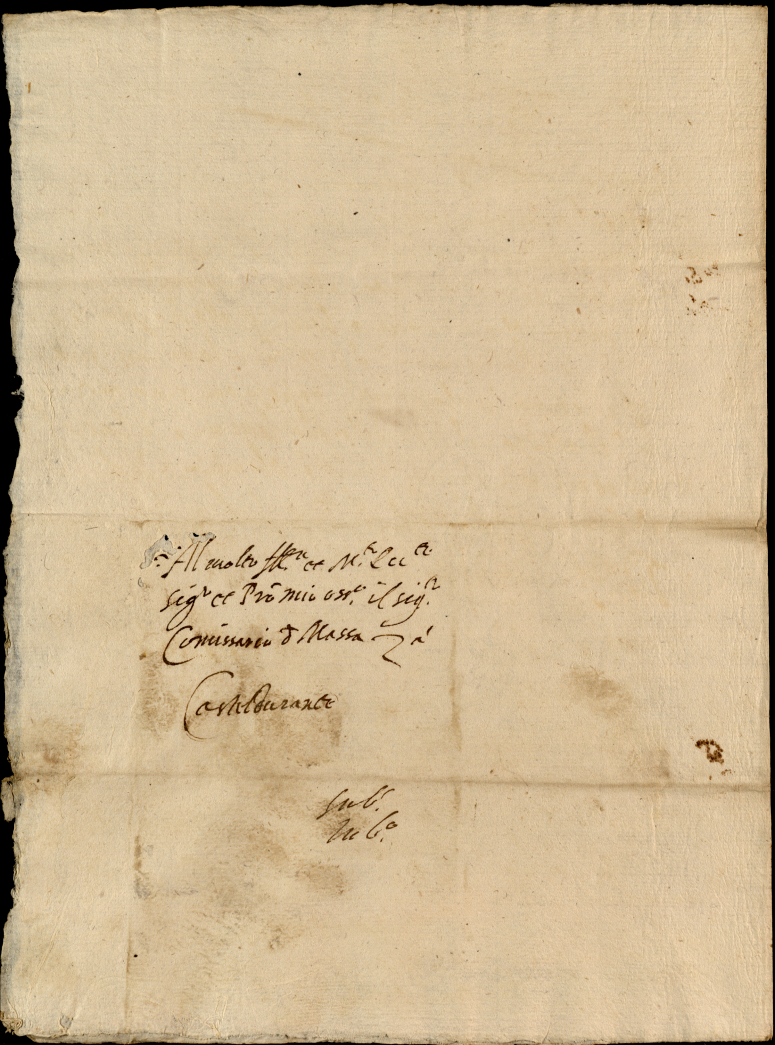 Al molto Ill.re et M.to Ecc.te
Sig.r et Prōn mio oss.o il sig.r
Comissario d Massa à
Casteldurante
sub.o
sub.o